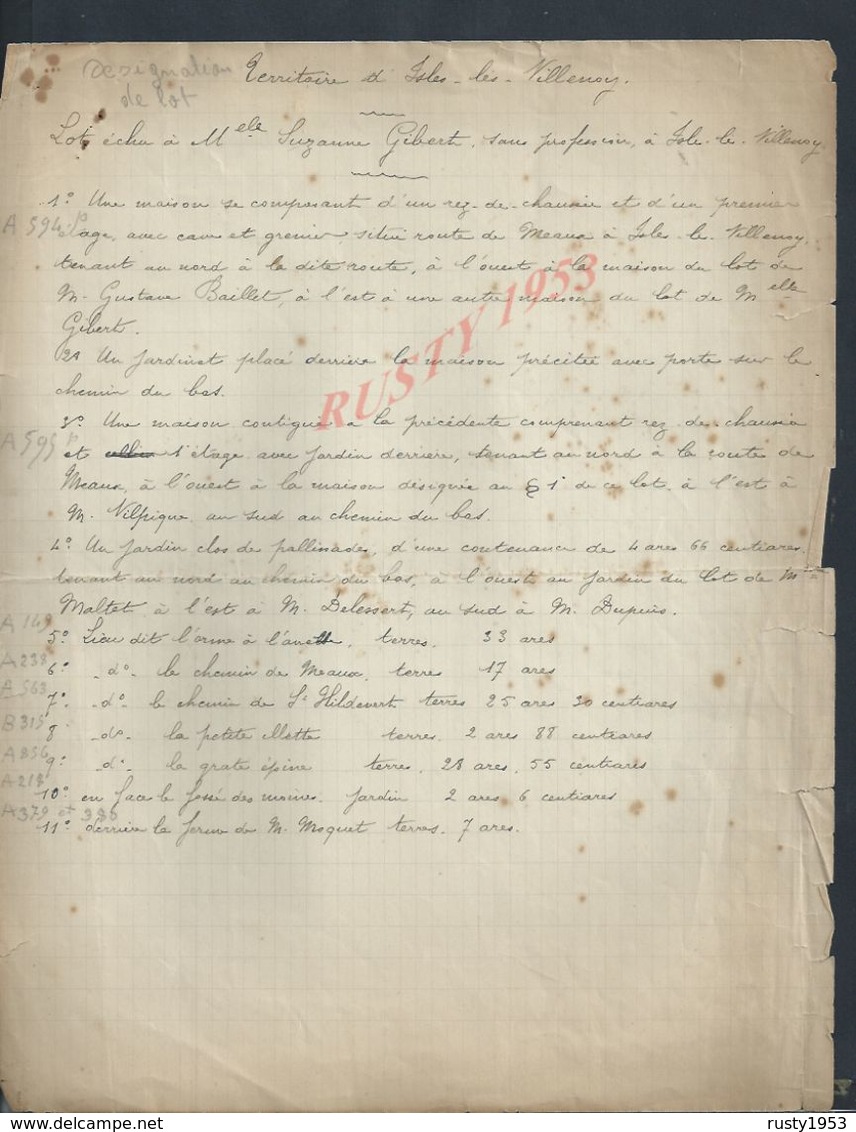 Designation
de lot
Territoire d'Isles-les-Villenoy.
Lot échu à M^elle Suzanne Gibert, sans profession, à Isle-les-Villenoy
1° Une maison se composant d'un rez-de-chaussée et d'un premier
A 594 p
étage, avec cave et grenier, situé route de Meaux à Isles-les-Villenoy,
tenant au nord à la dite route, à l'ouest à la maison du lot de
M. Gustave Baillet, à l'est à une autre maison du lot de M^elle
Gibert.
2° Un jardinet placé derrière la maison précitée avec porte sur le
chemin du bas.
3° Une maison contiguë a la précédente comprenant rez-de-chaussée
A 595 p
et 1^er étage avec jardin derrière, tenant au nord à la route de
Meaux, à l'ouest à la maison désignée au § 1° de ce lot, à l'est à
M. Vilpique au sud au chemin du bas.
4° Un jardin clos de pallissades, d'une contenance de 4 ares 66 centiares
tenant au nord au chemin du bas, à l'ouest au jardin du lot de M^me
Maltet à l'est à M. Delessert, au sud à M. Dupuis.
A 149
5° Lieu dit l'orme à l'anette, terres. 33 ares
A 238
6° -d°- le chemin de Meaux, terres 17 ares
A 563
7° -d°- le chemin de S^t Hildevert terres 25 ares 30 centiares
B 315
8° -d°- la petite Motte terres. 2 ares 88 centiares
A 856
9° -d°- la grate épine terres. 28 ares. 55 centiares
A 218
10° en face le fossé des moines. jardin 2 ares 6 centiares
A 379 et 380
11° derrière la ferme de M. Moquet terres. 7 ares.
RUSTY 1953
DELCAMPE.NET
rusty1953